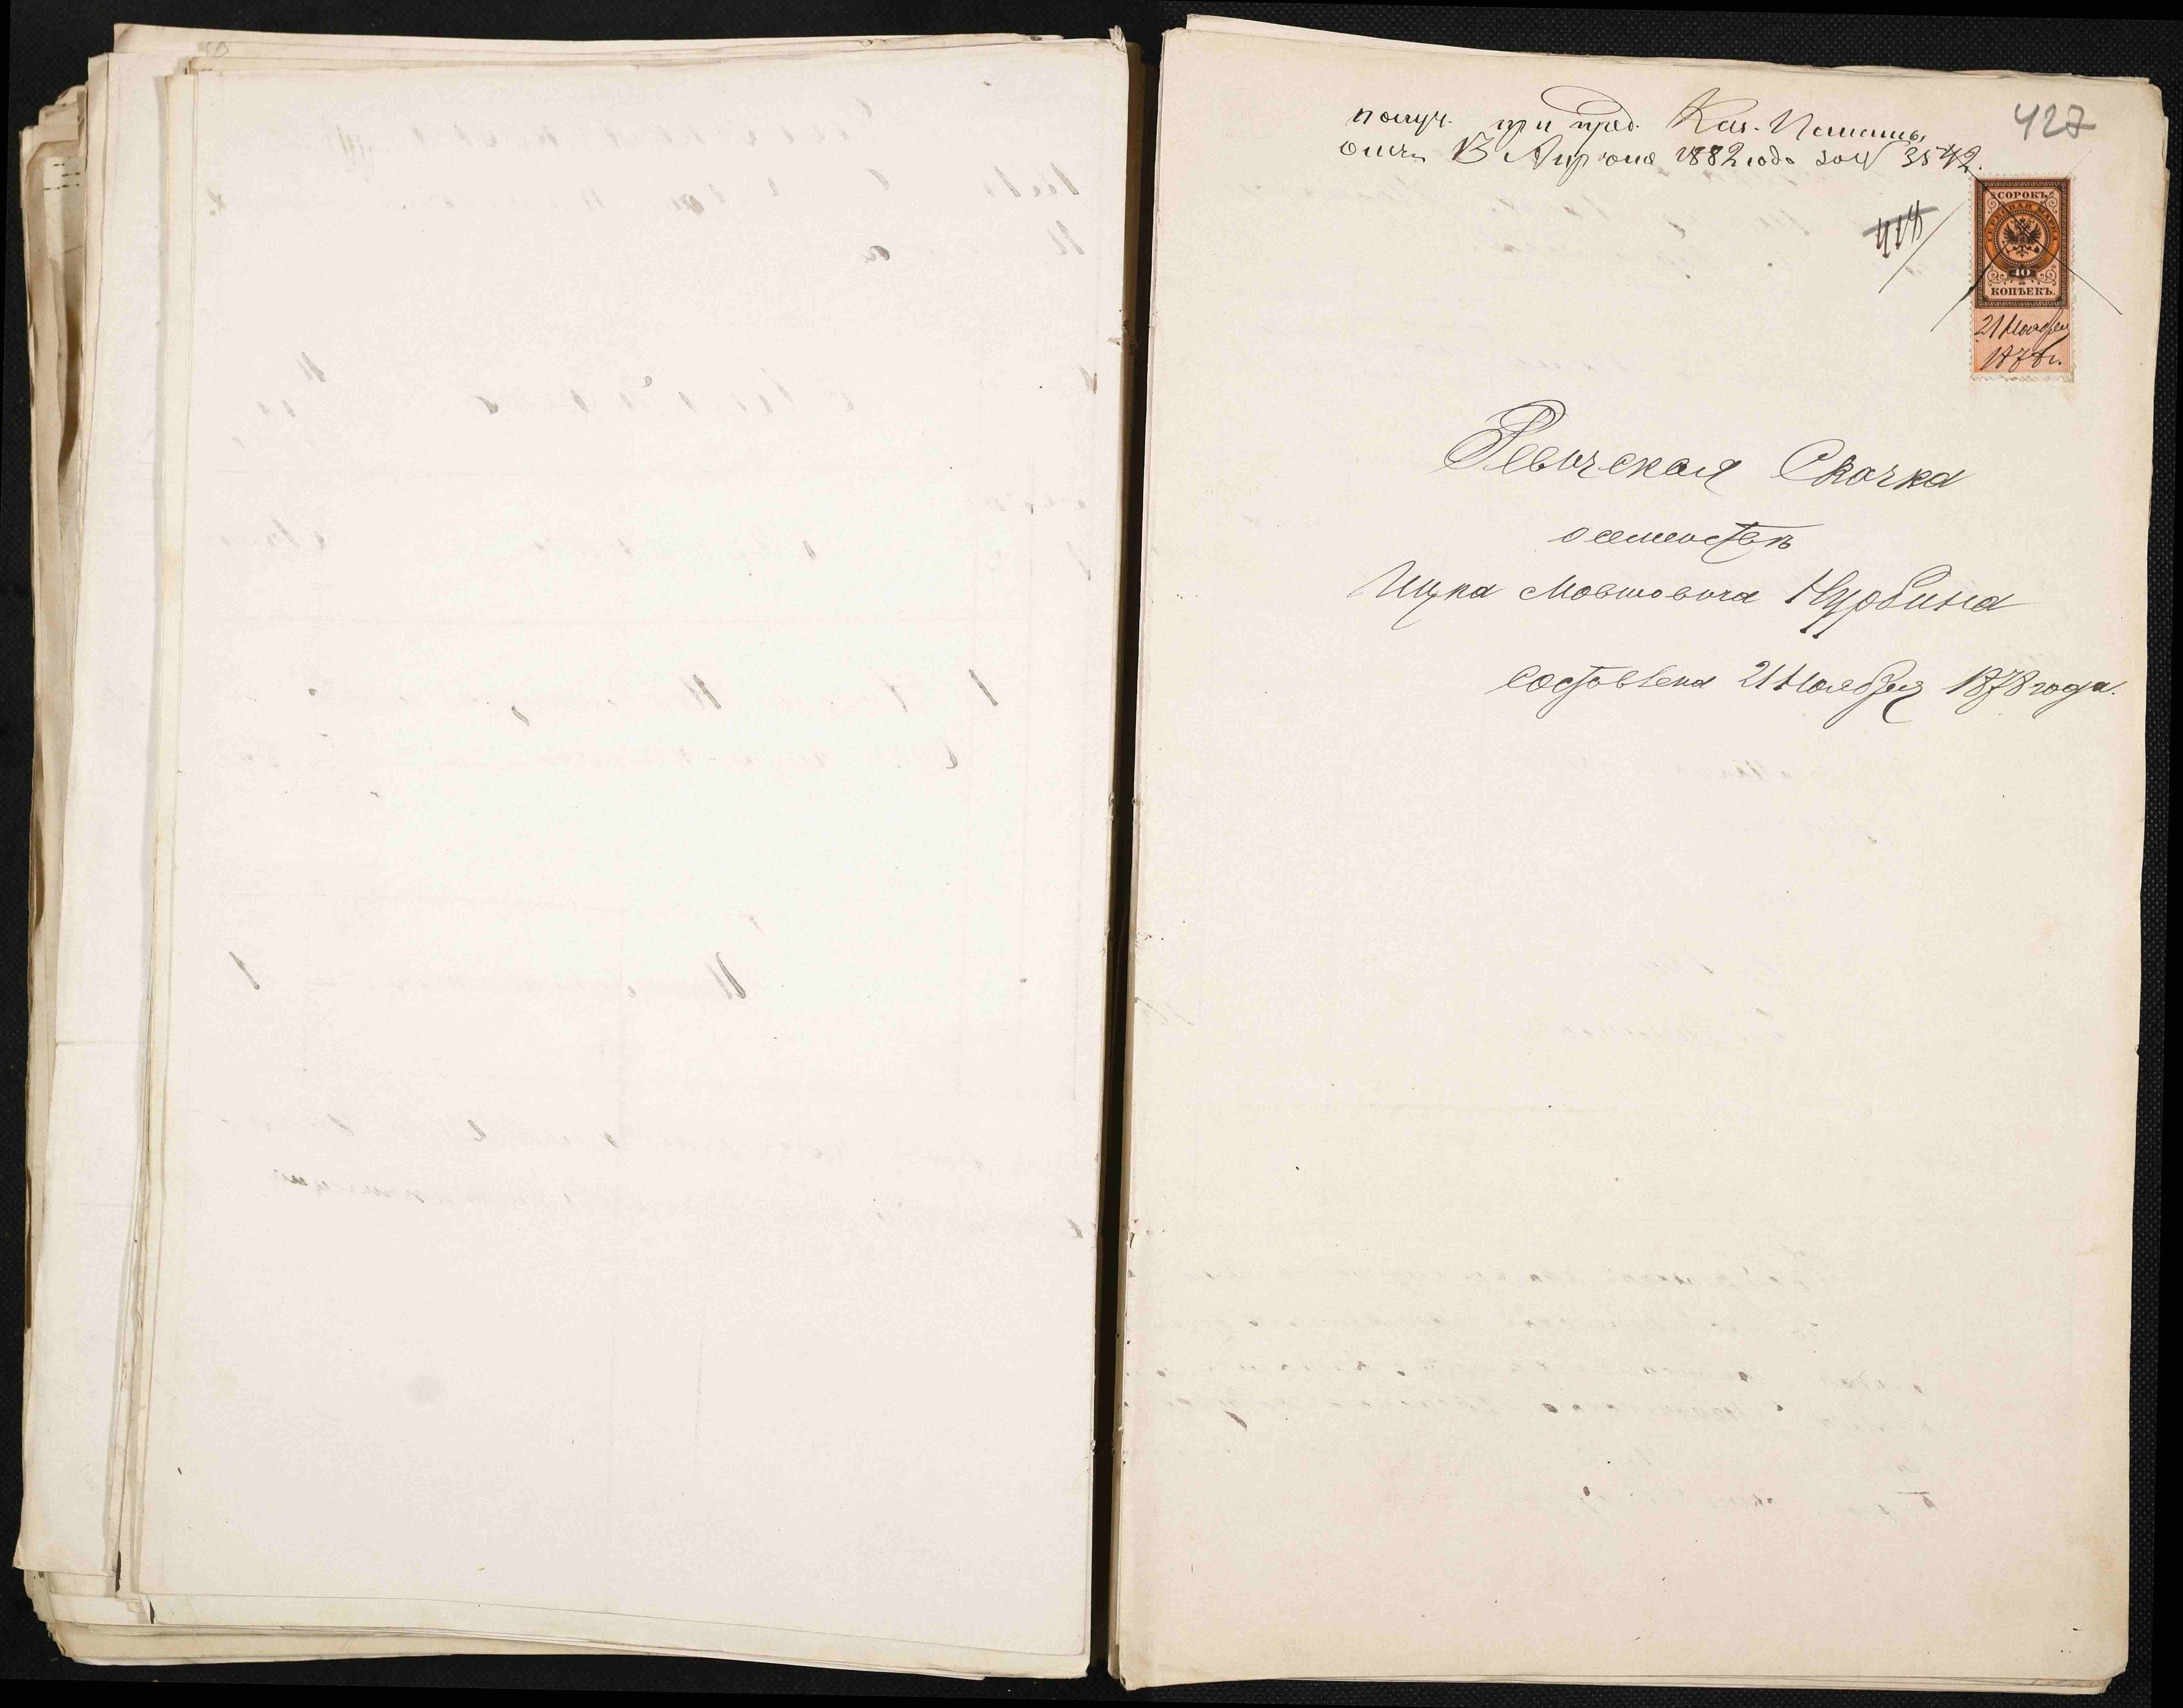 получ. при пред. Каз. Палаты
отъ 13 Апреля 1882 года за № 3542.
427
414
СОРОКЪ
ГЕРБОВАЯ МАРКА
40
КОПѢЕКЪ.
21 Ноября
1878 г.
Ревизская Сказка
о семействѣ
Ицка Мовшовича Нурбина
составлена 21 Ноября 1878 года.